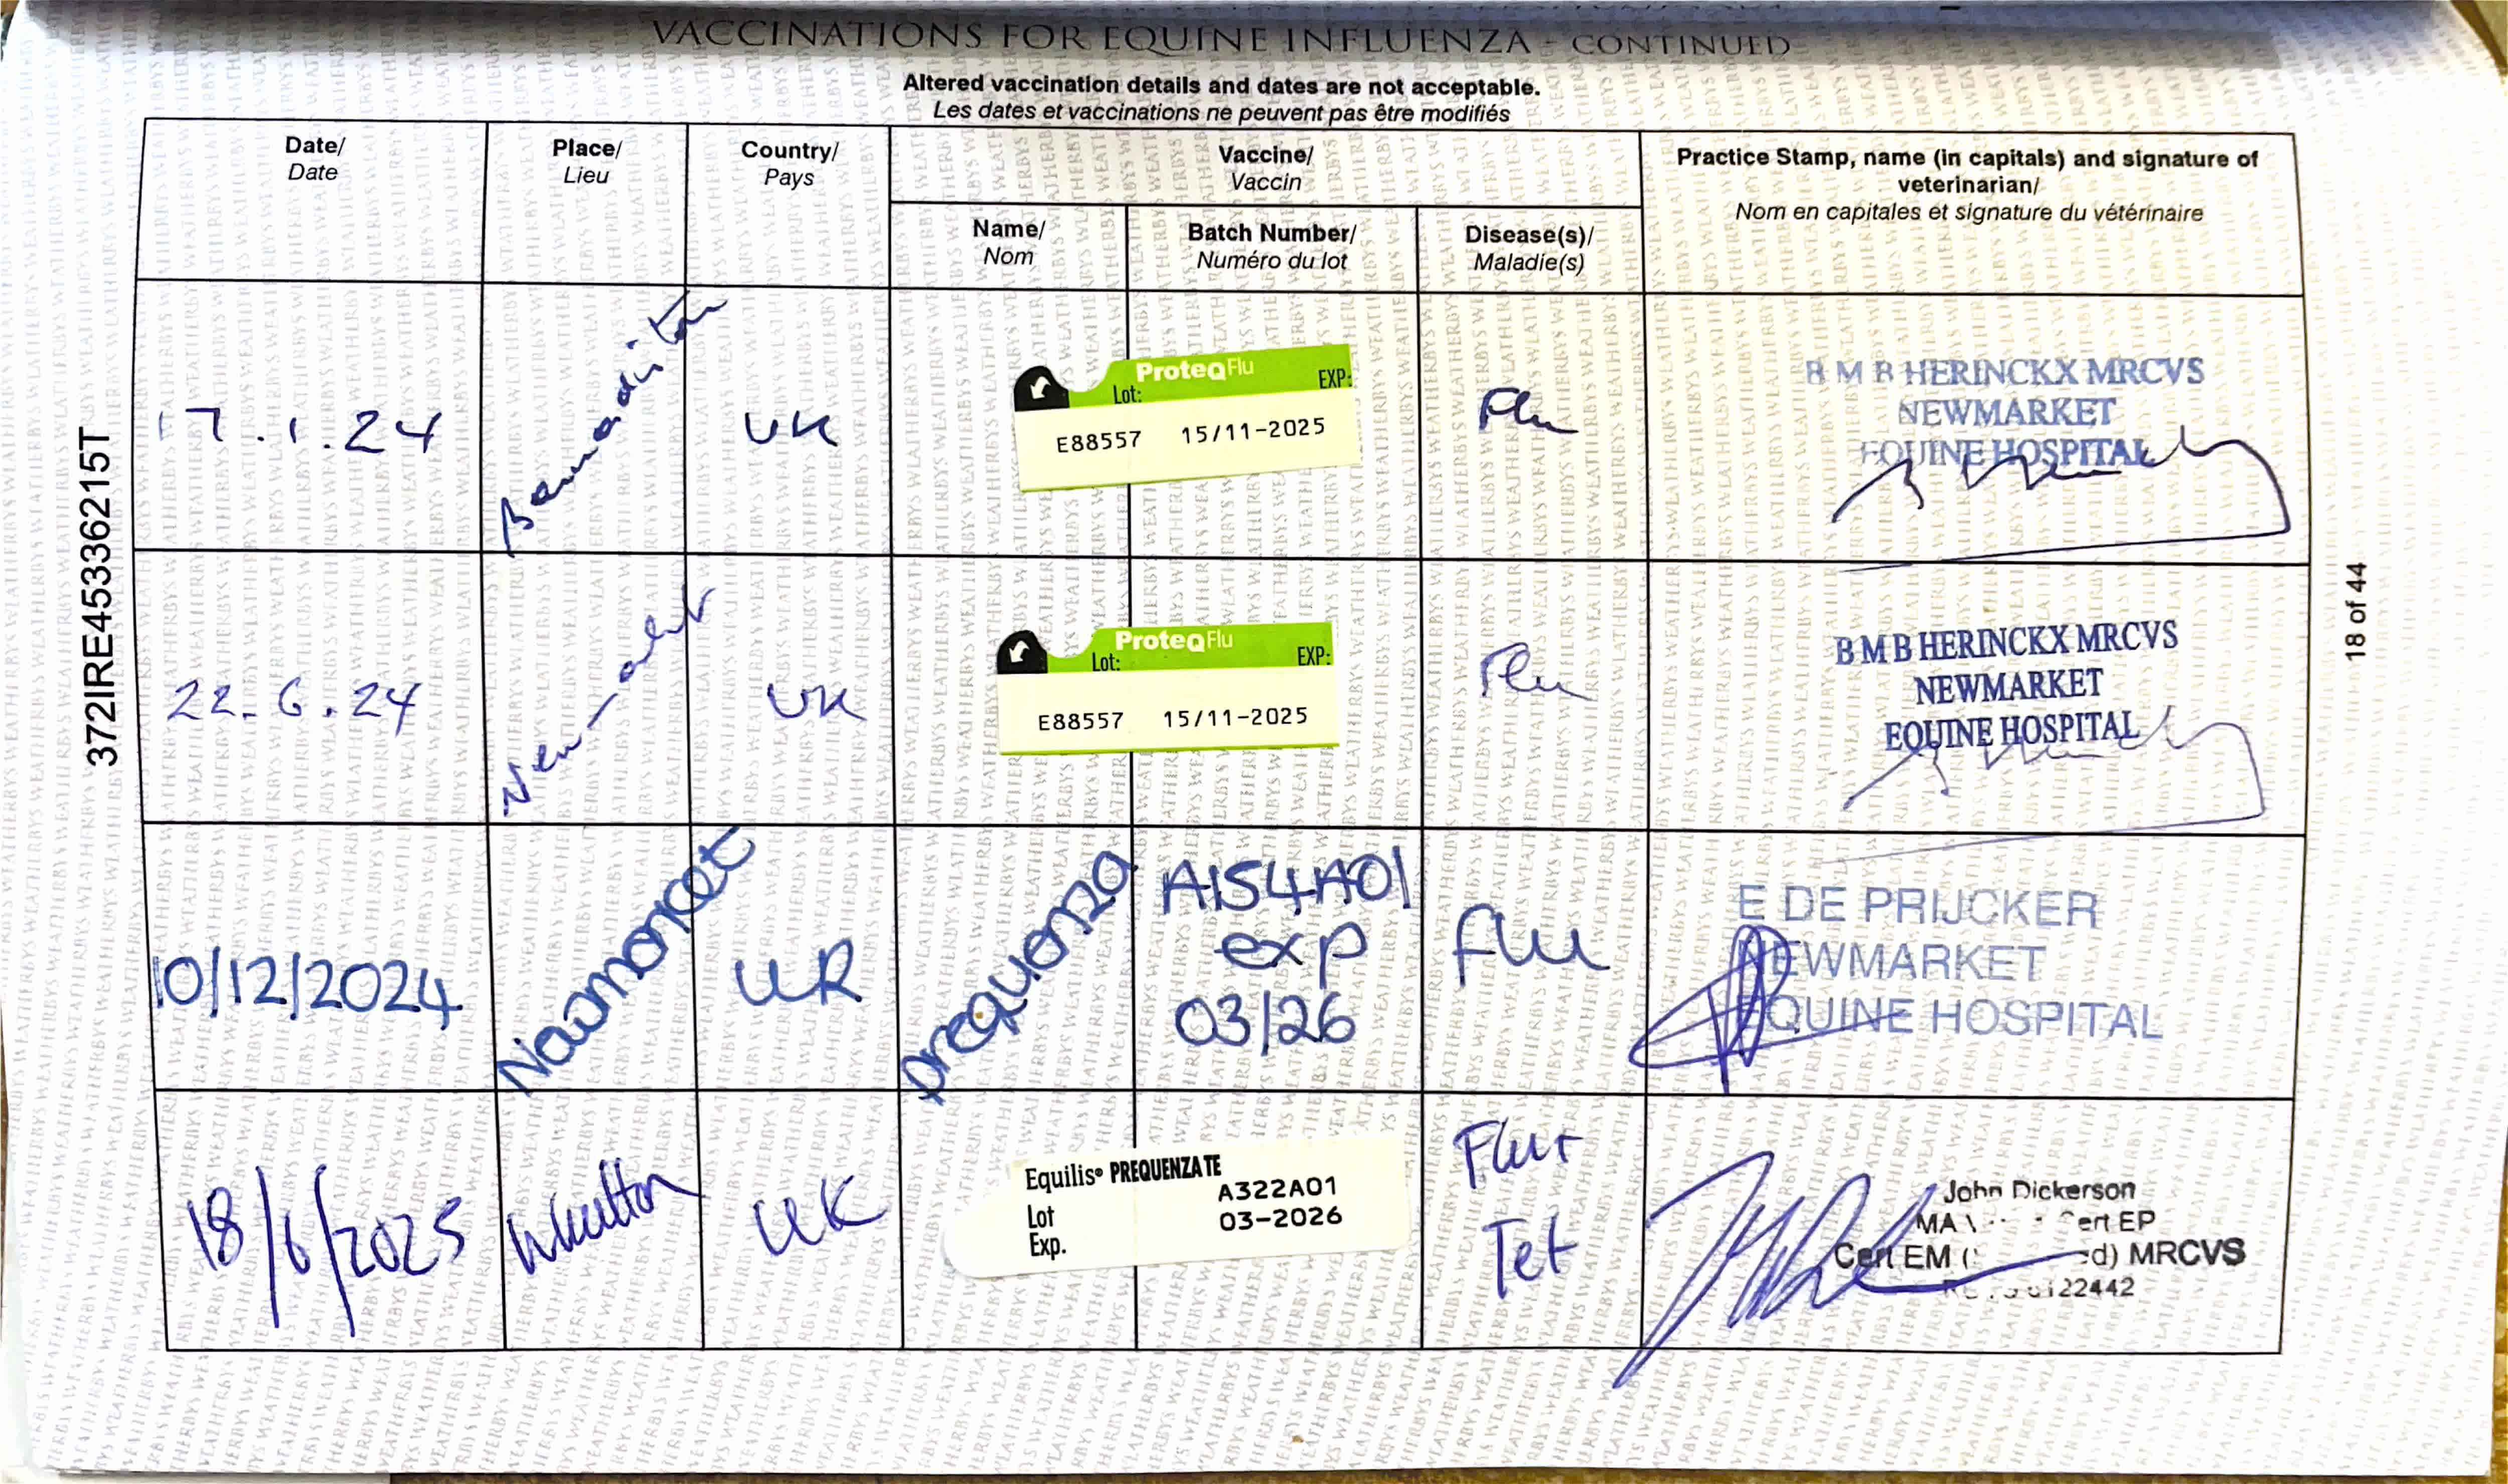 VACCINATIONS FOR EQUINE INFLUENZA - CONTINUED
Altered vaccination details and dates are not acceptable.
Les dates et vaccinations ne peuvent pas être modifiés
Date/
Date
Place/
Lieu
Country/
Pays
Vaccine/
Vaccin
Name/
Nom
Batch Number/
Numéro du lot
Disease(s)/
Maladie(s)
Practice Stamp, name (in capitals) and signature of
veterinarian/
Nom en capitales et signature du vétérinaire
17.1.24
UK
ProteqFlu
Lot: EXP:
E88557 15/11-2025
Flu
B M B HERINCKX MRCVS
NEWMARKET
EQUINE HOSPITAL
22.6.24
Newmarket
UK
ProteqFlu
Lot: EXP:
E88557 15/11-2025
Flu
B M B HERINCKX MRCVS
NEWMARKET
EQUINE HOSPITAL
10/12/2024
Newmarket
UK
prequenza
A154A01
exp
03/26
flu
E DE PRIJCKER
NEWMARKET
EQUINE HOSPITAL
18/6/2025
UK
Equilis® PREQUENZA TE
Lot A322A01
Exp. 03-2026
Flu+
Tet
John Dickerson
MA Cert EP
Cert EM ( d) MRCVS
122442
372IRE45336215T
18 of 44
WEATHERBYS